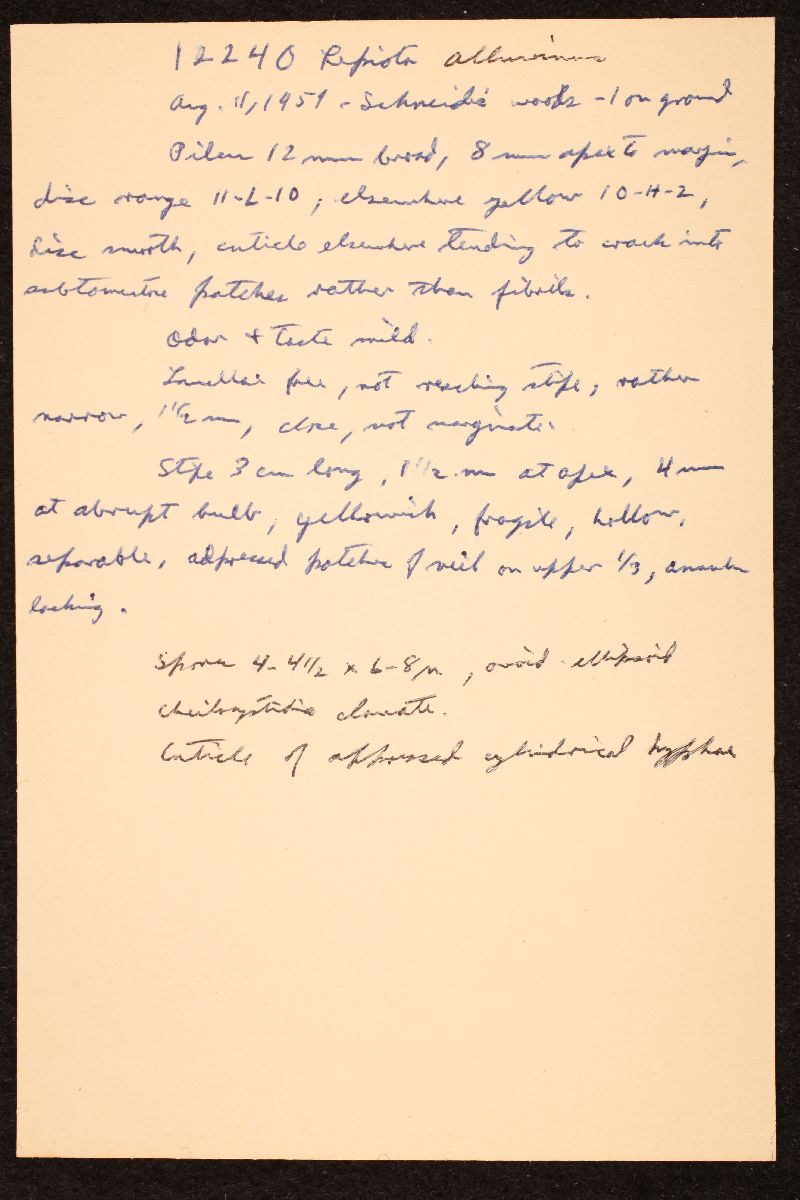 12240 Lepiota alluvinus
Aug. 11, 1959 - Schneider's woods - 1 on ground
Pileus 12 mm broad, 8 mm apex to margin,
disc orange 11-L-10; elsewhere yellow 10-H-2,
disc smooth, cuticle elsewhere tending to crack into
subtomentose patches rather than fibrils.
Odor + taste mild.
Lamellae free, not reaching stipe, rather
narrow, 1 1/2 mm, close, not marginate.
Stipe 3 cm long, 1 1/2 mm at apex, 4 mm
at abrupt bulb, yellowish, fragile, hollow,
separable, adpressed patches of veil on upper 1/3, annulus
lacking.
Spores 4-4 1/2 x 6-8 µ, ovoid-ellipsoid
Cheilocystidia clavate.
Cuticle of appressed cylindrical hyphae